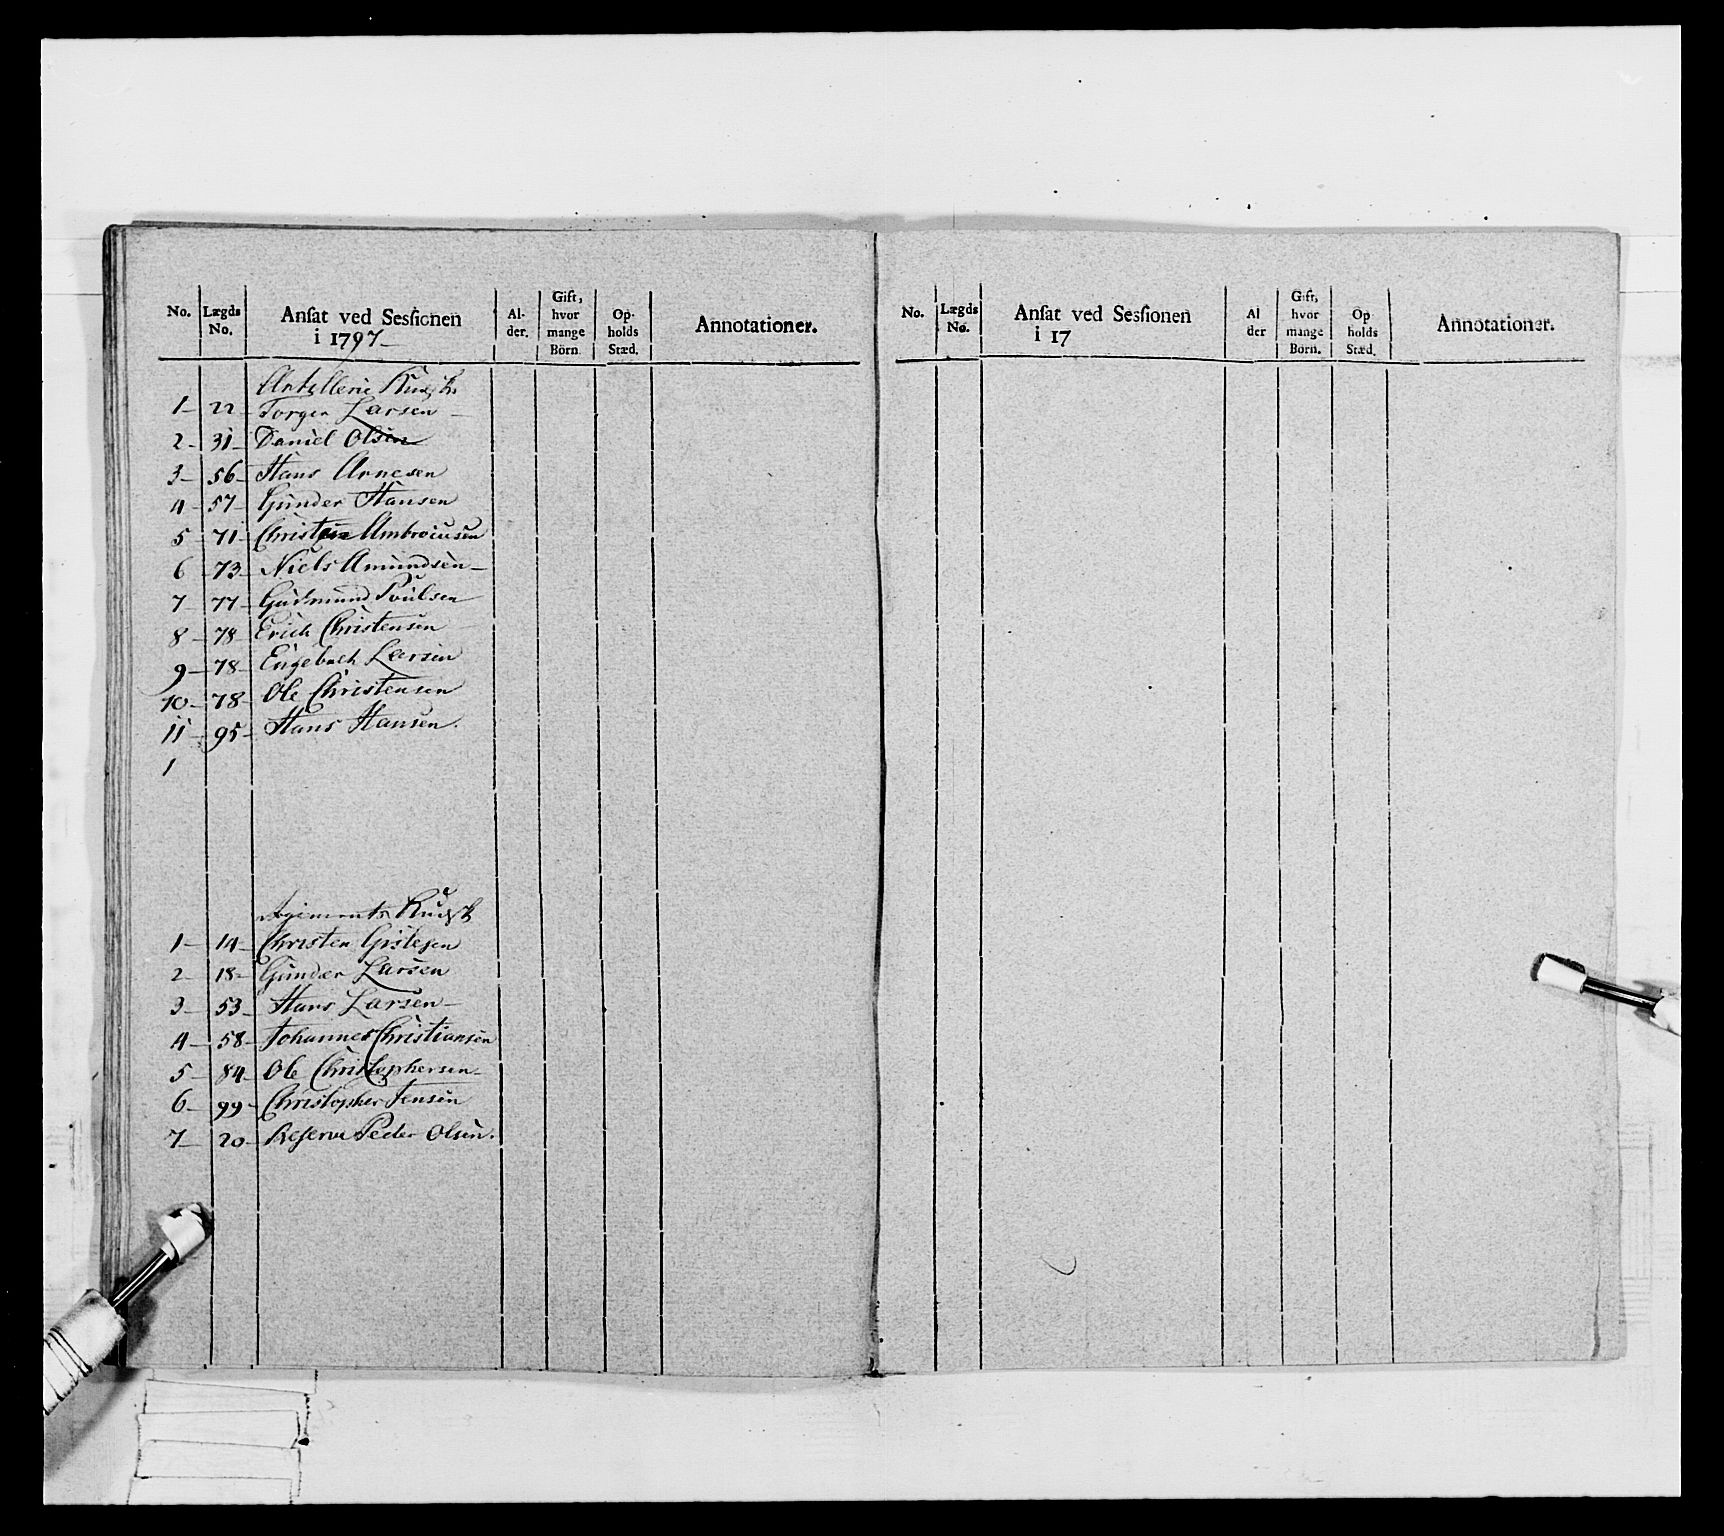 No. Lægds No. Ansat ved Sessionen i 1797 Al- der. Gift, hvor mange Börn Op- holds Stæd. Annotationer.
Artillerie Kudsk
1 22 Torger Larsen
2 31 Daniel Olsen
3 56 Hans Arnesen
4 57 Gunder Hansen
5 71 Christen Ambrociusen
6 73 Niels Amundsen
7 77 Gudmund Poulsen
8 78 Erich Christensen
9 78 Engebreth Larsen
10 78 Ole Christensen
11 95 Hans Hansen.
1
Regiments Kudsk
1 14 Christen Gislesen
2 18 Gunder Larsen
3 53 Hans Larsen
4 58 Johannes Christiansen
5 84 Ole Christophersen
6 99 Christopher Jensen
7 20 Reserve Peder Olsen.
No. Lægds No. Ansat ved Sessionen i 17 Al der Gift, hvor mange Börn. Op holds Stæd. Annotationer.